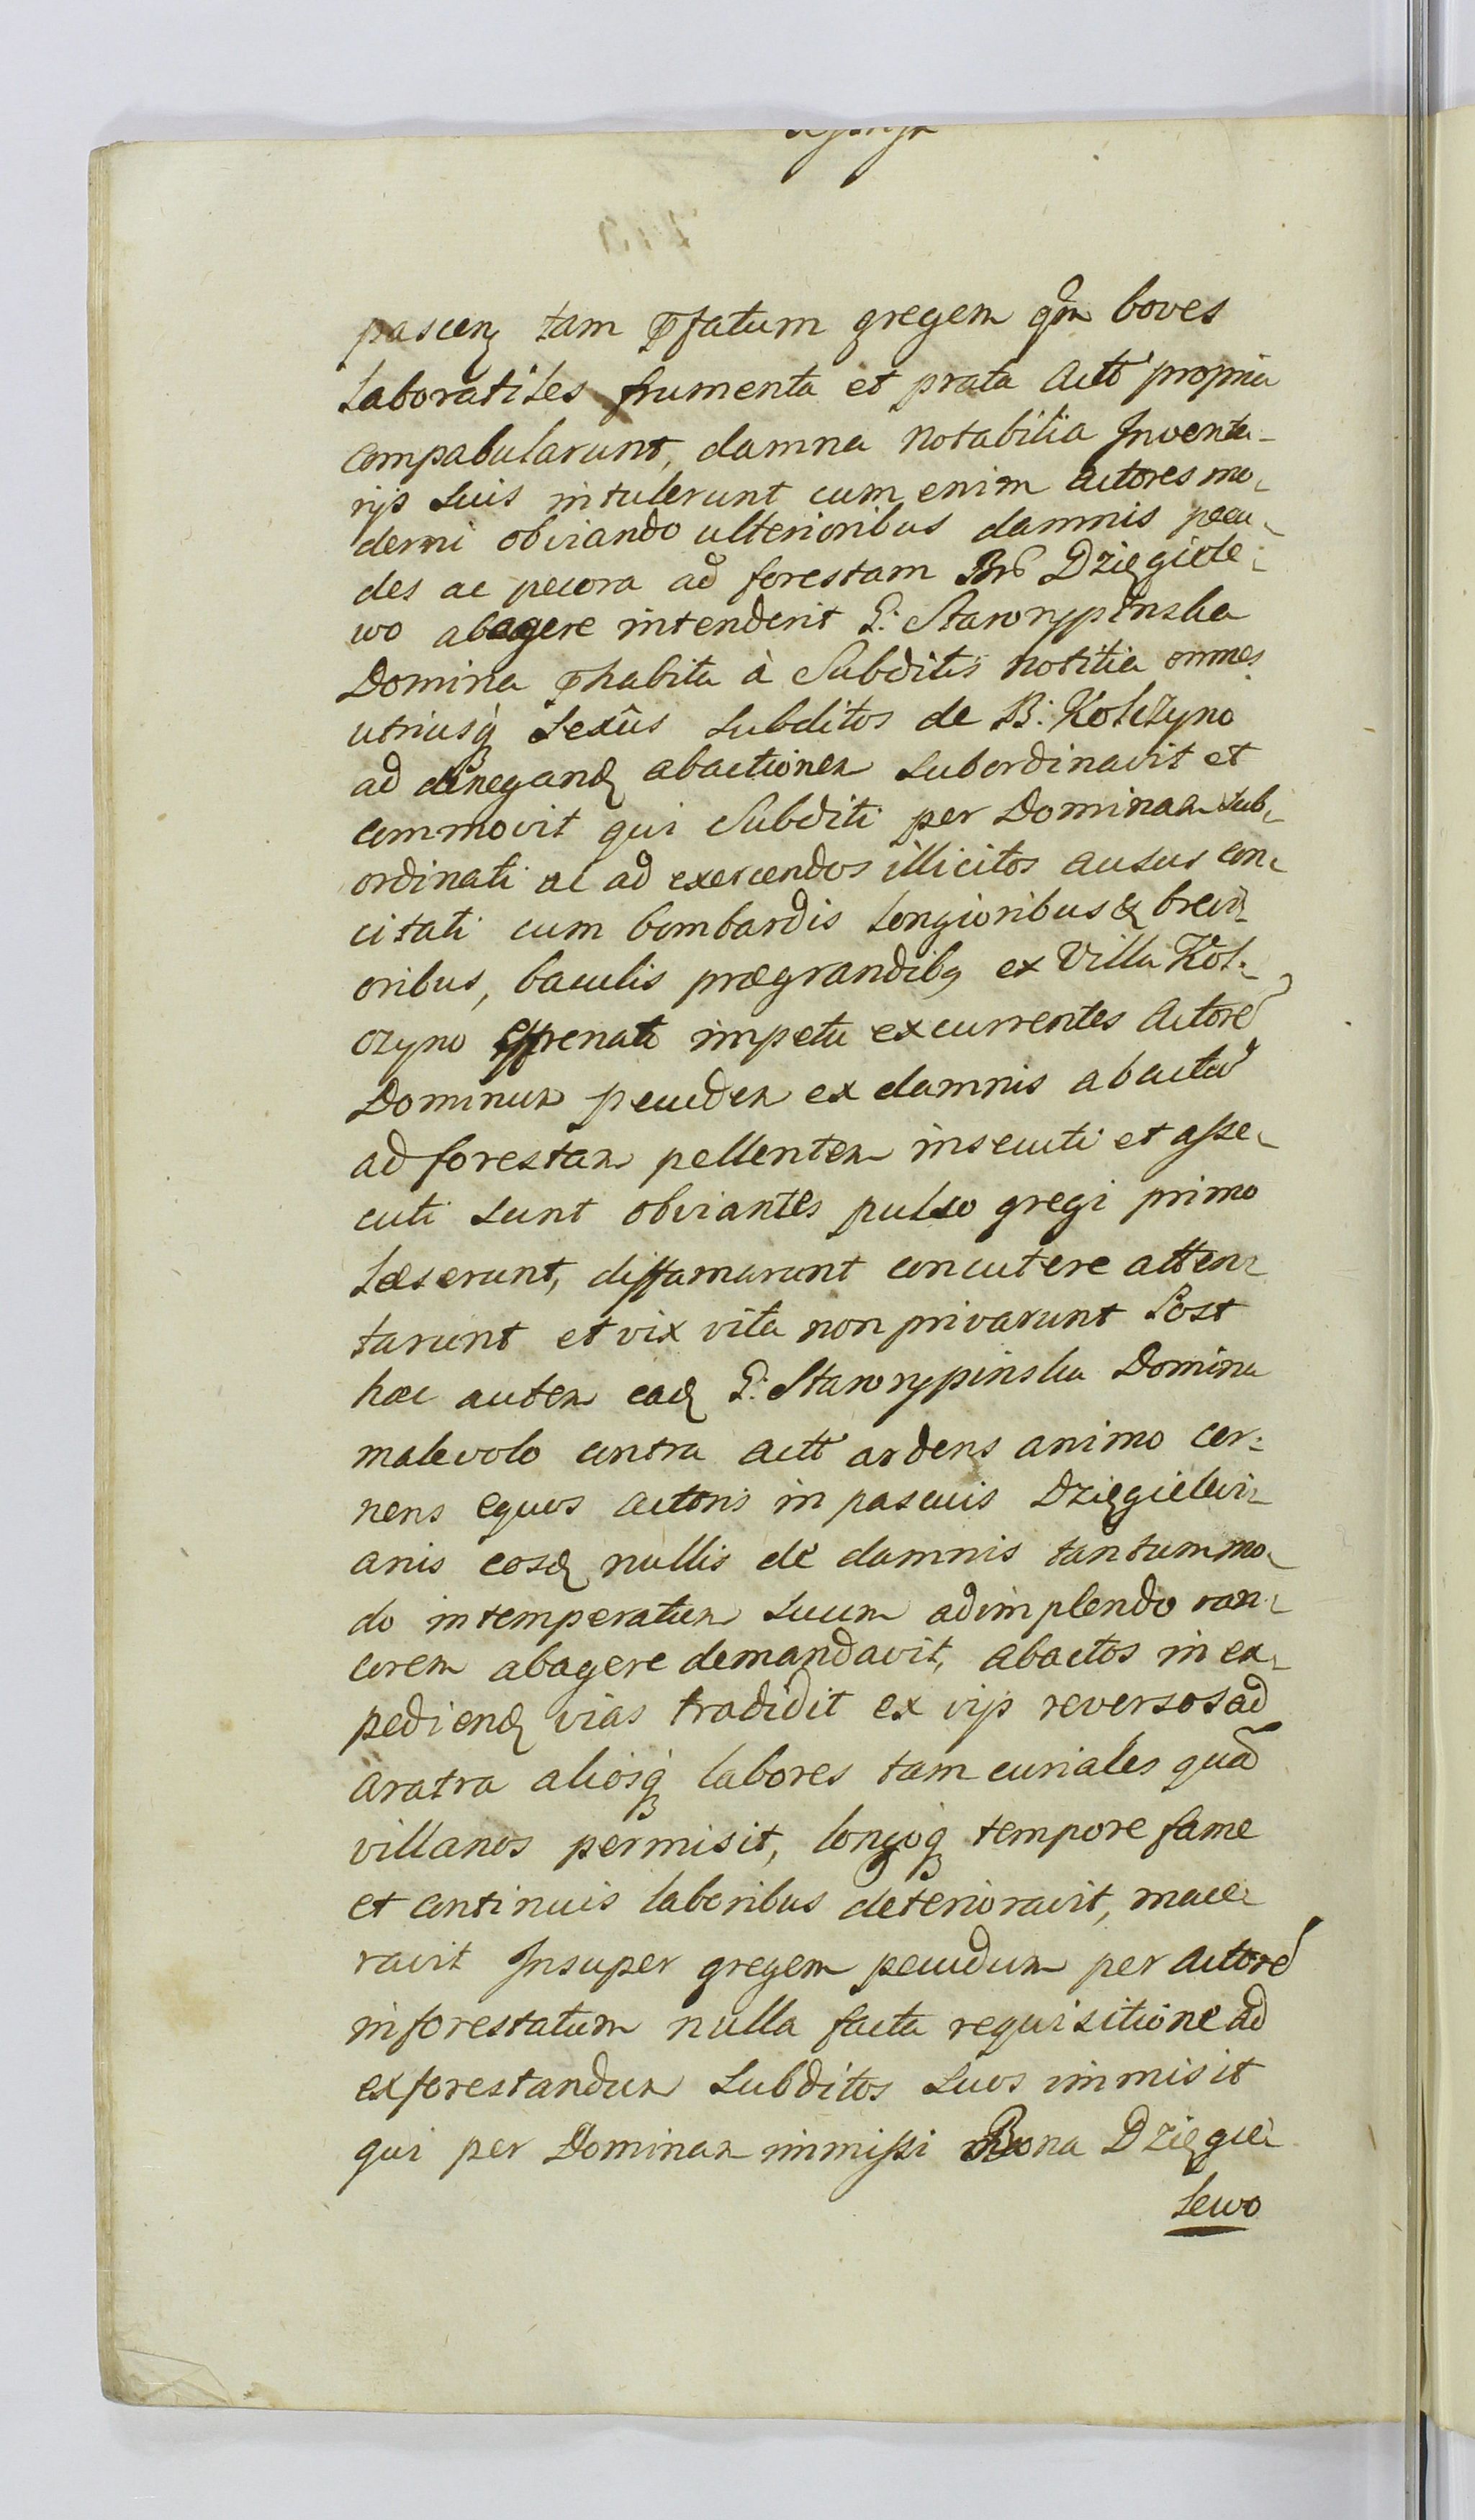 pascenꝫ tam p̄fatum gregem qm̄ boves
laboratiles frumenta et prata Actt propria
compabularunt, damna notabilia Inventa-
rijs suis intulerunt cum enim actores mo-
derni obviando ulterioribus damnis pecu-
des ac pecora ad forestam Brō Dzięgiele-
wo abagere intenderit G: Starorypinska
Domina p̄habita à Subditis notitia omnes
utriusq́ sexûs subditos de B: Kolczyno
ad denegandꝫ abactionem subordinavit et
commovit qui Subditi per Dominam sub-
ordinati ac ad exercendos illicitos ausus con-
citati cum bombardis longioribus & brevi-
oribus, baculis prægrandibꝫ ex Villa Kol-
czyno effrenato impetu excurrentes Actorē
Dominum pecudem ex damnis abactā
ad forestam pellentem insecuti et asse-
cuti sunt obviantes pulso gregi primo
læserunt, diffamarunt concutere atten-
tarunt et vix vita non privarunt Post
hæc autem eadꝫ G: Starorypinska Domina
malevolo contra actt ardens animo cer-
nens equos actoris in pascuis Dzięgielevi-
anis eosdꝫ nullis de damnis tantummo-
do intemperatum suum adimplendo ran-
corem abagere demandavit, abactos in ex-
pediendꝫ vias tradidit ex vijs reversos ad
aratra aliosq́ labores tam curiales quā
villanos permisit, longoq́ tempore fame
et continuis laboribus deterioravit, mace-
ravit Insuper gregem pecudum per actorē
inforestatum nulla facta requisitione ad
exforestandum subditos suos immisit
qui per Dominam immissi Bona Dzięgie-
lewo